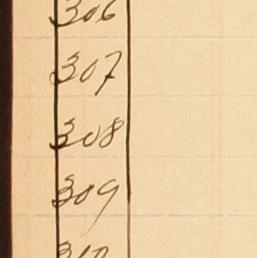 306
307
308
309
310